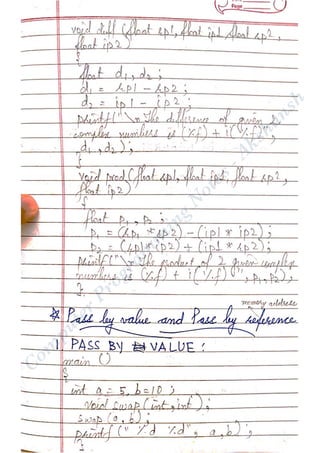 void diff (float rp1, float ip1, float rp2,
float ip2)
{
float d1, d2;
d1 = rp1 - rp2;
d2 = ip1 - ip2;
printf("\n The difference of given 2
complex numbers is (%f) + i(%f)",
d1, d2);
}
void prod (float rp1, float ip1, float rp2,
float ip2)
{
float p1, p2;
p1 = (rp1 * rp2) - (ip1 * ip2);
p2 = (rp1 * ip2) + (ip1 * rp2);
printf("\n The product of 2 given complex
numbers is (%f) + i (%f)", p1, p2);
}
memory address
Pass by value and Pass by reference
1 PASS BY VALUE :
main ()
{
int a = 5, b = 10 ;
void swap (int, int);
swap (a, b);
printf (" %d %d", a, b);
}